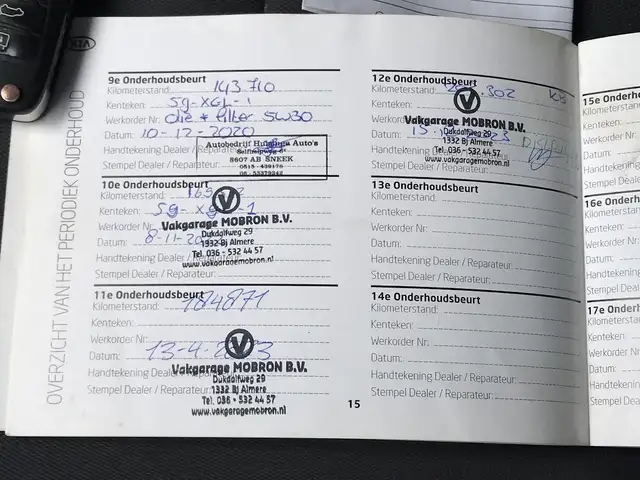 KIA
OVERZICHT VAN HET PERIODIEK ONDERHOUD
9e Onderhoudsbeurt
Kilometerstand: 143710
Kenteken: 59-XGL-1
Werkorder Nr: olie + filter 5W30
Datum: 10-12-2020
Handtekening Dealer / Reparateur:
Stempel Dealer / Reparateur:
Autobedrijf Auto's
8607 AB SNEEK
0515-439175
06-53379342
10e Onderhoudsbeurt
Kilometerstand:
Kenteken: 59-XGL-1
Werkorder Nr:
Datum: 8-11-20
Handtekening Dealer / Reparateur:
Stempel Dealer / Reparateur:
Vakgarage MOBRON B.V.
Dukdalfweg 29
1332 BJ Almere
Tel. 036 - 532 44 57
www.vakgaragemobron.nl
11e Onderhoudsbeurt
Kilometerstand: 184871
Kenteken:
Werkorder Nr:
Datum: 13-4-2023
Handtekening Dealer / Reparateur:
Stempel Dealer / Reparateur:
Vakgarage MOBRON B.V.
Dukdalfweg 29
1332 BJ Almere
Tel. 036 - 532 44 57
www.vakgaragemobron.nl
12e Onderhoudsbeurt
Kilometerstand: .302 km
Kenteken:
Werkorder Nr:
Datum: 15
Handtekening Dealer / Reparateur:
Stempel Dealer / Reparateur:
Vakgarage MOBRON B.V.
Dukdalfweg 29
1332 BJ Almere
Tel. 036 - 532 44 57
www.vakgaragemobron.nl
13e Onderhoudsbeurt
Kilometerstand:
Kenteken:
Werkorder Nr:
Datum:
Handtekening Dealer / Reparateur:
Stempel Dealer / Reparateur:
14e Onderhoudsbeurt
Kilometerstand:
Kenteken:
Werkorder Nr:
Datum:
Handtekening Dealer / Reparateur:
Stempel Dealer / Reparateur:
15
15e Onderh
Kilometerstan
Kenteken:
Werkorder
Datum:
Handteken
Stempel D
16e Onde
Kilometers
Kenteken:
Werkorde
Datum:
Handteke
Stempel
17e Ond
Kilometer
Kenteke
Werkord
Datum:
Handtek
Stempe